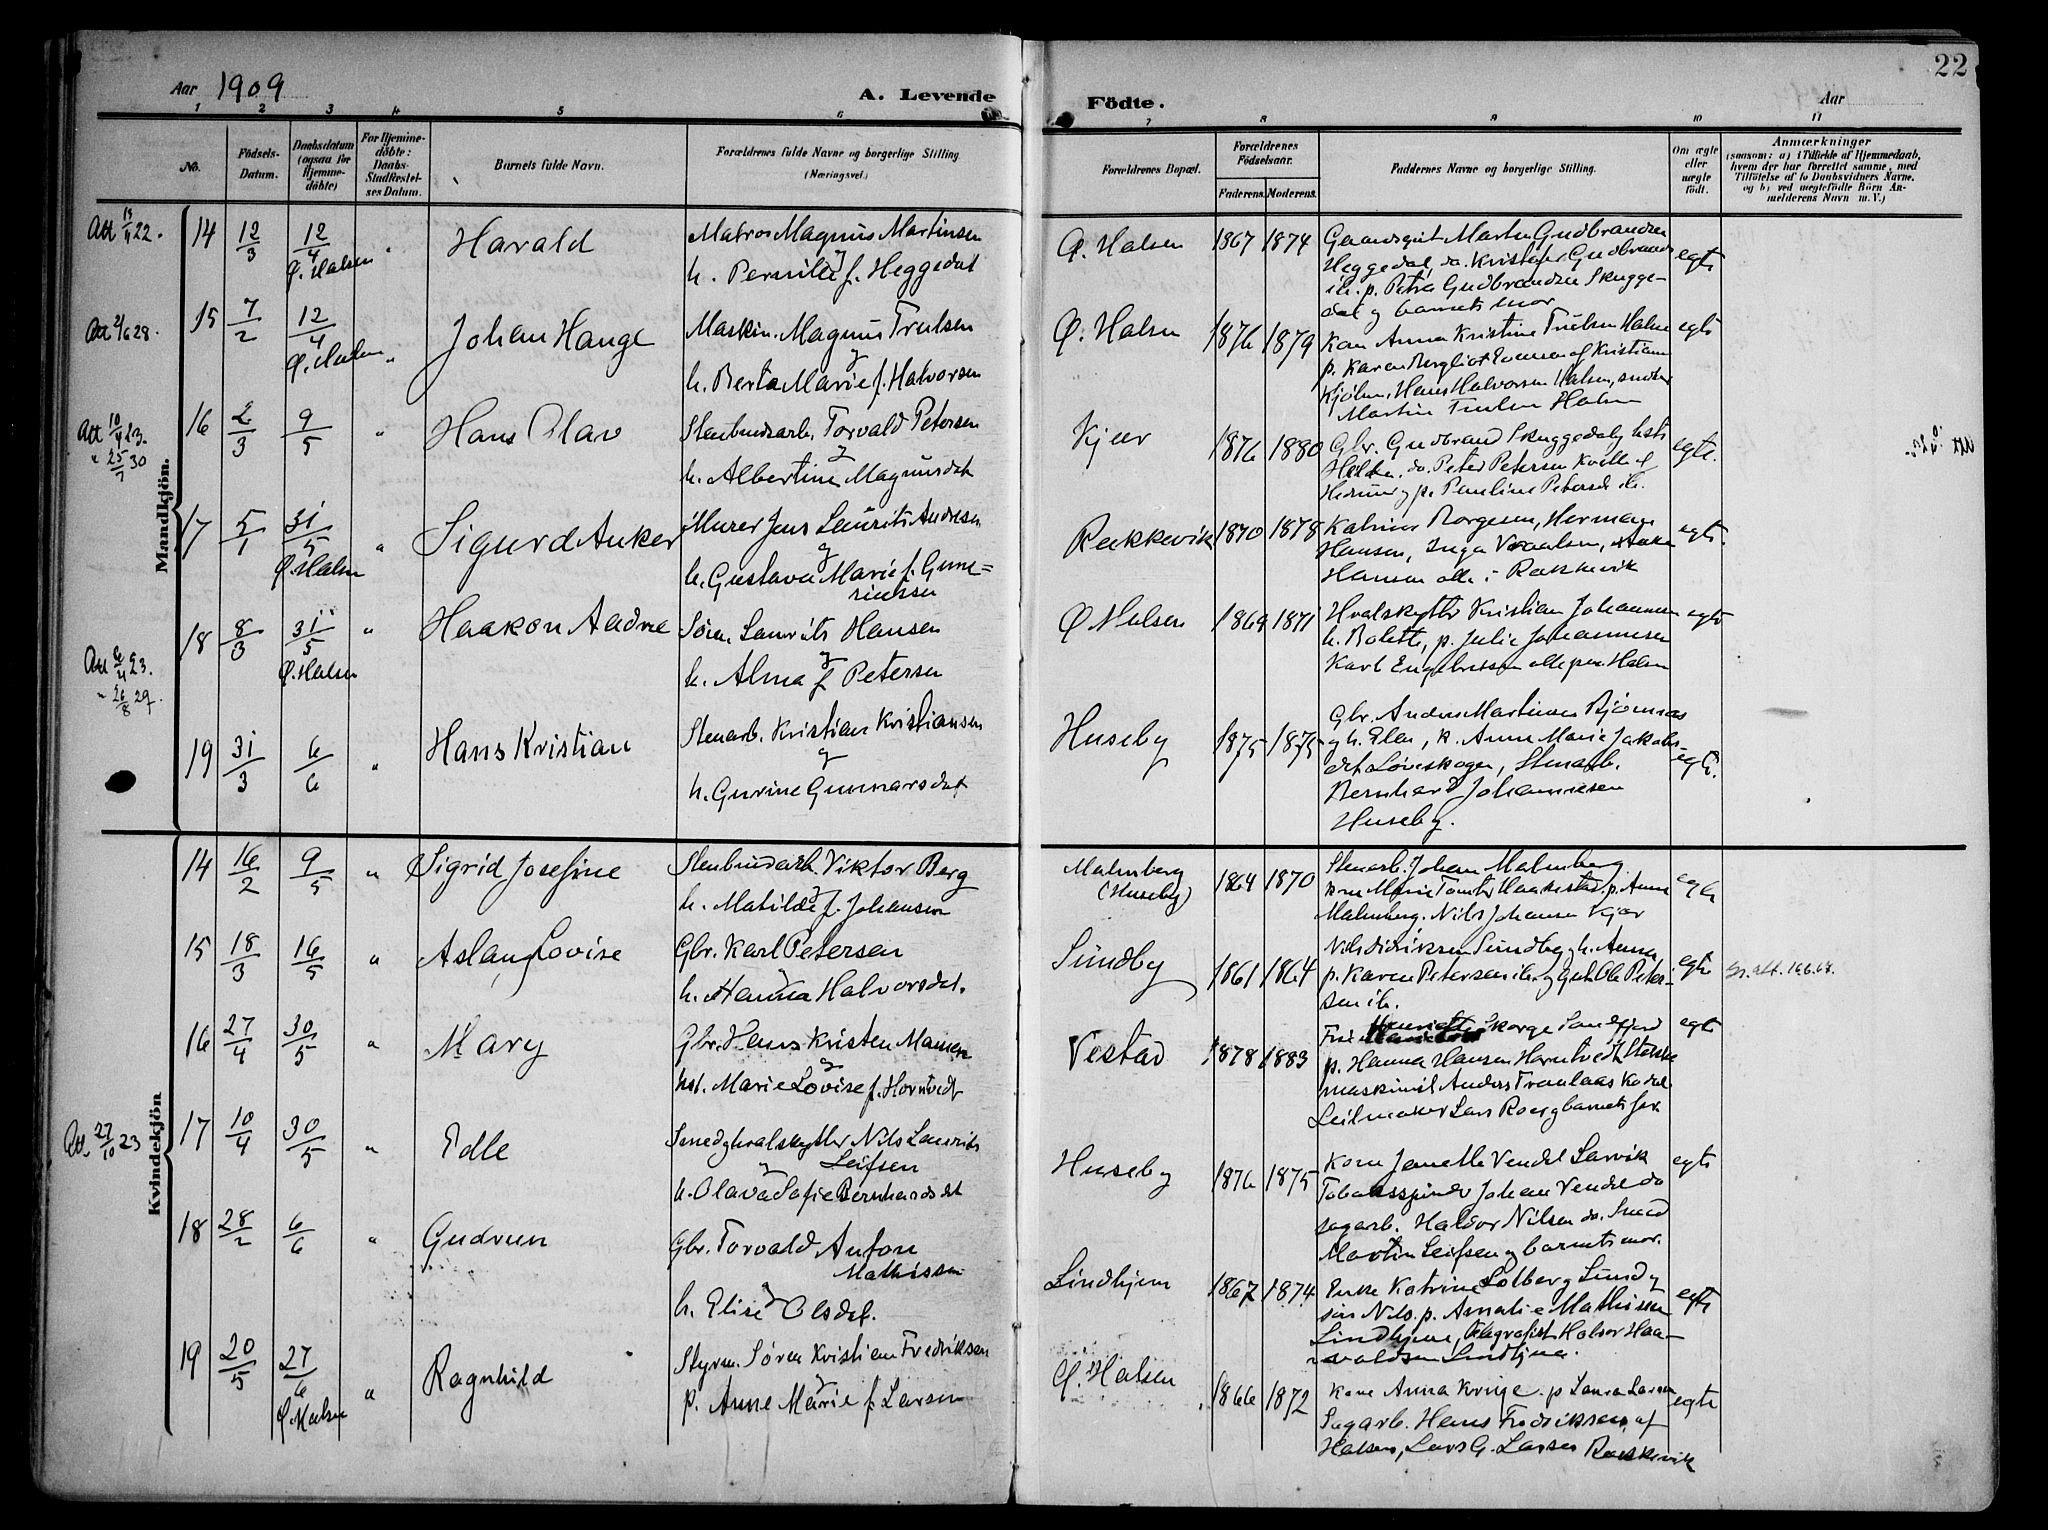 22
Aar 1909
A. Levende
Födte.
Aar
1 2 3 4 5 6 7 8 9 10 11
No.
Födsels-Datum.
Daabsdatum (ogsaa for Hjemmedöbte)
For Hjemmedöbte: Daabs-Stadfæstelses Datum.
Barnets fulde Navn.
Forældrenes fulde Navne og borgerlige Stilling (Næringsvei.)
Forældrenes Bopæl.
Forældrenes Födselsaar.
Faderens. Moderens.
Faddernes Navne og borgerlige Stilling.
Om ægte eller uægte födt.
Anmærkninger
(saasom: a) i Tilfælde af Hjemmedaab, hvem der har forrettet samme, med Tilföielse af to Daabsvidners Navne, og b) ved uægtefödte Börn Anmelderens Navn m. V.)
Mandkjön.
Att 22.
14 12/3 12/4 Ø. Halsen " Harald
Matros Magnus Martinsen
og
h. Pernille f. Heggedal
Ø. Halsen 1867 1874
Martin Gudbrandsen
Heggedal, do. Kristofer Gudbrands
ih. p. Petra Gudbrandsen Skugge-
dal og barnets mor
egte
28.
15 7/2 12/4 Ø. Halsen " Johan Hauge
Maskin. Magnus Trulsen
og
h. Berta Marie f. Halvorsen
Ø. Halsen 1876 1879
Kone Anna Kristine Trulsen Halsen
p. Karen Bergliot Evensen af Kristiania
Kjøbm. Hans Halvorsen Halsen, smed
Martin Trulsen Halsen
egte
Att 10/4 23.
" 25/7 30
16 2/3 9/5 " Hans Olav
Stenhudsarb. Torvald Petersen
og
h. Albertine Magnusdat
Kjær 1876 1880
Gbr. Gudbrand Skuggedal og hst
do. Peter Petersen Kvelle af
Hedrum og p. Pauline Petersen ih.
egte.
17 5/1 31/5 Ø. Halsen " Sigurd Anker
Murer Jens Laurits Andresen
og
h. Gustava Marie f. Gune-
riussen
Rekkevik 1870 1878
Katrine Borgersen, Herman
Hansen, Inga Vraalsen,
Hansen alle i Rekkevik
egte.
Att 6/4 23.
" 26/8 29.
18 8/3 31/5 Ø. Halsen " Haakon Aadne
Søren Laurits Hansen
og
h. Alma f Petersen
Ø Halsen 1869 1871
Hvalskytter Kristian Johannesen
h. Bolette, p. Julie Johannesen
Karl Engebretsen alle paa Halsen
egte
19 31/3 6/6 " Hans Kristian
Stenarb. Kristian Kristiansen
og
h. Gurine Gunnarsdat
Huseby 1875 1875
Gbr. Anders Martinsen Bjørnaas
og h. Elen, p. Anne Marie Jakobs-
dat Løveskogen, Stenarb.
Bernhard Johannesen
Huseby.
egte.
Kvindekjön
14 16/2 9/5 " Sigrid Josefine
Stenhudarb. Viktor Berg
og
h. Matilde f. Johansen
Malmberg
(Huseby) 1864 1870
Stenarb. Johan Malmberg
kone Marie Tomter Haakestad, p. Anna
Malmberg. Nils Johansen Kjær
egte
15 18/3 16/5 " Aslaug Lovise
Gbr. Karl Petersen
og
h. Hanna Halvorsdat.
Sundby 1861 1864
Nils Didriksen Sundby og h. Anna,
p. Karen Petersen ih. og Gut. Ole Peter-
sen ih.
egte
16 27/4 30/5 " Mary
Gbr. Hans Kristen Hansen
og
hst. Marie Lovise f. Horntvedt
Vestad 1878 1883
Fru Henriette Skorge Sandefjord
p. Hanna Hansen Horntvedt Stokke
maskinist Anders Tranlaas Kodal
Seilmaker Lars Roer og barnets far
egte
Att. 27/10 23
17 10/4 30/5 " Edle
Smed og hvalskytter Nils Laurits
Leifsen
og
h. Olava Sofie Bernhardsdat
Huseby 1876 1875
Kone Janette Vendel Larvik
Tobaksspinder Johan Vendel do
sagarb. Haldor Nilsen do. Smed
Martin Leifsen og barnets mor.
egte
18 28/2 6/6 " Gudrun
Gbr. Torvald Anton
Mathissen
og
h. Elise Olsdat.
Lindhjem 1867 1874
Enke Katrine Solberg Sundby
søn Nils. p. Amalie Mathissen
Lindhjem, Telegrafist Halvor Haa-
valdsen Lindhjem.
egte
19 20/5 27/6 Ø. Halsen " Ragnhild
Styrm. Søren Kristian Fredriksen
og
p. Anne Marie f Larsen
Ø. Halsen 1866 1872
Kone Anna Kringe. p Laura Larsen
Sagarb. Hans Fredriksen, af
Halsen, Lars G. Larsen Rekkevik
egte